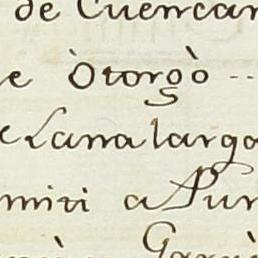 de Cuencar
e Òtorgò --
e Lana larga
miti a Pur
Garri